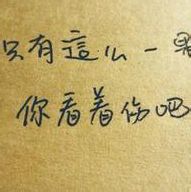 只有這么一
你看着伤吧